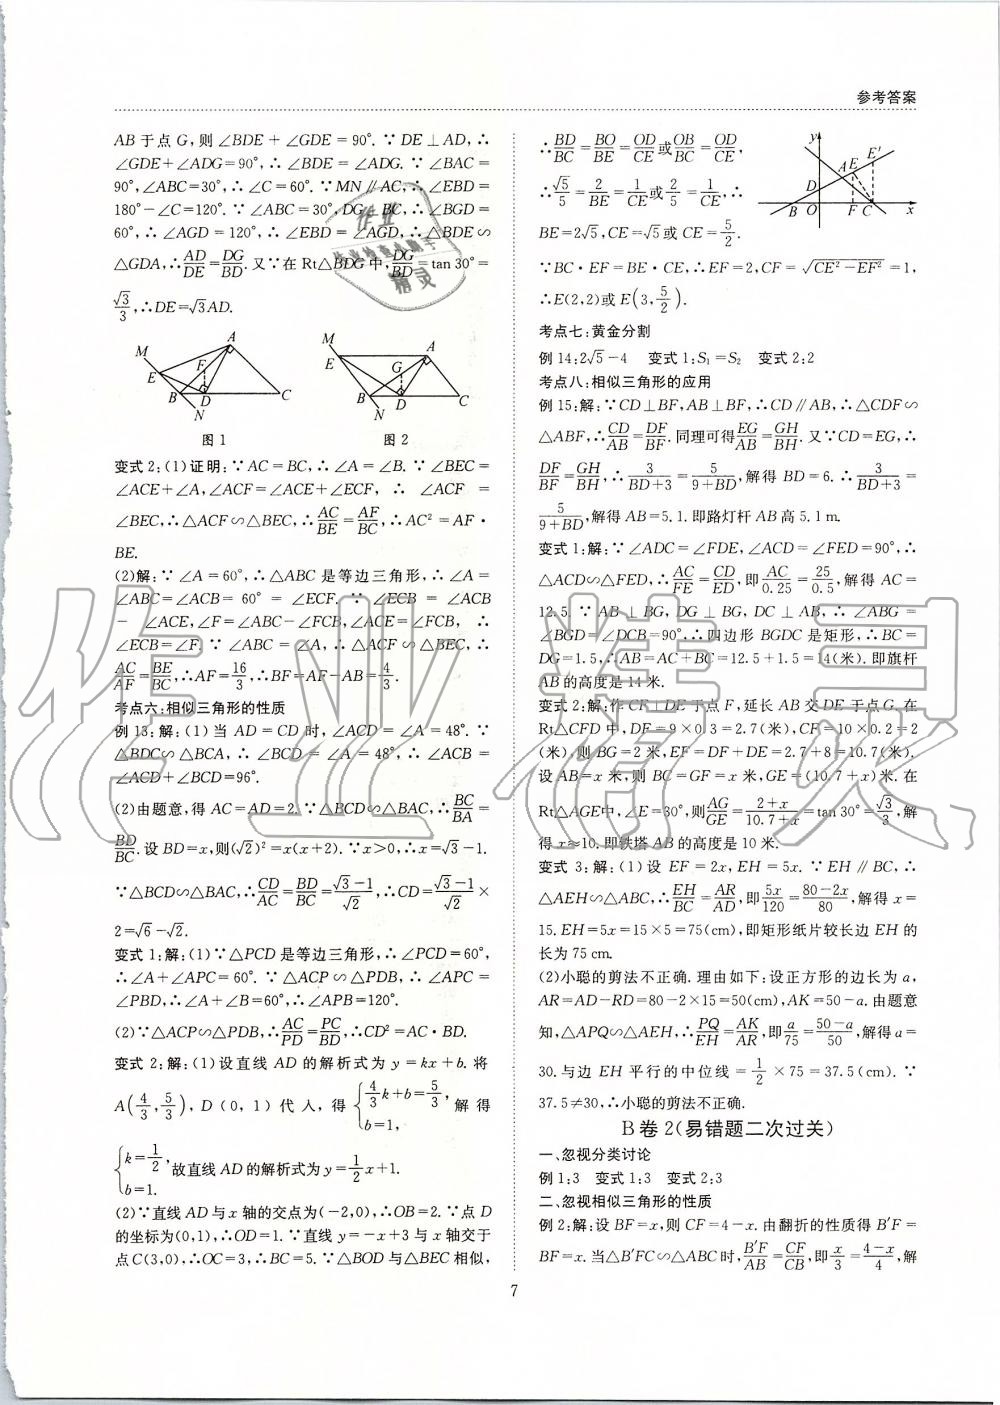 参考答案
AB于点G,则∠BDE+∠GDE=90°.∵DE⊥AD,∴
∠GDE+∠ADG=90°,∴∠BDE=∠ADG.∵∠BAC=
90°,∠ABC=30°,∴∠C=60°.∵MN∥AC,∴∠EBD=
180°-∠C=120°.∵∠ABC=30°,DG⊥BC,∴∠BGD=
60°,∴∠AGD=120°,∴∠EBD=∠AGD,∴△BDE∽
△GDA,∴AD/DE=DG/BD.又∵在Rt△BDG中,DG/BD=tan30°=
√3/3,∴DE=√3AD.
M A E F B D N C
M A E G B D N C
图1 图2
变式2:(1)证明:∵AC=BC,∴∠A=∠B.∵∠BEC=
∠ACE+∠A,∠ACF=∠ACE+∠ECF,∴∠ACF=
∠BEC,∴△ACF∽△BEC,∴AC/BE=AF/BC,∴AC²=AF·
BE.
(2)解:∵∠A=60°,∴△ABC是等边三角形,∴∠A=
∠ABC=∠ACB=60°=∠ECF.∵∠ECB=∠ACB
-∠ACE,∠F=∠ABC-∠FCB,∠ACE=∠FCB,∴
∠ECB=∠F.∵∠ABC=∠A,∴△ACF∽△BEC,∴
AC/AF=BE/BC,∴AF=16/3,∴BF=AF-AB=4/3.
考点六:相似三角形的性质
例13:解:(1)当AD=CD时,∠ACD=∠A=48°.∵
△BDC∽△BCA,∴∠BCD=∠A=48°,∴∠ACB=
∠ACD+∠BCD=96°.
(2)由题意,得AC=AD=2.∵△BCD∽△BAC,∴BC/BA=
BD/BC.设BD=x,则(√2)²=x(x+2).∵x>0,∴x=√3-1.
∵△BCD∽△BAC,∴CD/AC=BD/BC=(√3-1)/√2,∴CD=(√3-1)/√2×
2=√6-√2.
变式1:解:(1)∵△PCD是等边三角形,∴∠PCD=60°,
∴∠A+∠APC=60°.∵△ACP∽△PDB,∴∠APC=
∠PBD,∴∠A+∠B=60°,∴∠APB=120°.
(2)∵△ACP∽△PDB,∴AC/PD=PC/BD,∴CD²=AC·BD.
变式2:解:(1)设直线AD的解析式为y=kx+b.将
A(4/3,5/3),D(0,1)代入,得{4/3k+b=5/3, b=1, 解得
{k=1/2, b=1. 故直线AD的解析式为y=1/2x+1.
(2)∵直线AD与x轴的交点为(-2,0),∴OB=2.∵点D
的坐标为(0,1),∴OD=1.∵直线y=-x+3与x轴交于
点C(3,0),∴OC=3,∴BC=5.∵△BOD与△BEC相似,
∴BD/BC=BO/BE=OD/CE或OB/BC=OD/CE,
∴√5/5=2/BE=1/CE或2/5=1/CE,∴
BE=2√5,CE=√5或CE=5/2.
y A E E′ D B O F C x
∵BC·EF=BE·CE,∴EF=2,CF=√(CE²-EF²)=1,
∴E(2,2)或E(3,5/2).
考点七:黄金分割
例14:2√5-4 变式1:S₁=S₂ 变式2:2
考点八:相似三角形的应用
例15:解:∵CD⊥BF,AB⊥BF,∴CD∥AB,∴△CDF∽
△ABF,∴CD/AB=DF/BF.同理可得EG/AB=GH/BH.又∵CD=EG,∴
DF/BF=GH/BH,∴3/(BD+3)=5/(9+BD),解得BD=6.∴3/(BD+3)=
5/(9+BD),解得AB=5.1.即路灯杆AB高5.1m.
变式1:解:∵∠ADC=∠FDE,∠ACD=∠FED=90°,∴
△ACD∽△FED,∴AC/FE=CD/ED,即AC/0.25=25/0.5,解得AC=
12.5.∵AB⊥BG,DG⊥BG,DC⊥AB,∴∠ABG=
∠BGD=∠DCB=90°,∴四边形BGDC是矩形,∴BC=
DG=1.5,∴AB=AC+BC=12.5+1.5=14(米).即旗杆
AB的高度是14米.
变式2:解:作CF⊥DE于点F,延长AB交DE于点G.在
Rt△CFD中,DF=9×0.3=2.7(米),CF=10×0.2=2
(米),则BG=2米,EF=DF+DE=2.7+8=10.7(米).
设AB=x米,则BC=GF=x米,GE=(10.7+x)米.在
Rt△AGE中,∠E=30°,则AG/GE=(2+x)/(10.7+x)=tan30°=√3/3,解
得x≈10.即铁塔AB的高度是10米.
变式3:解:(1)设EF=2x,EH=5x.∵EH∥BC,∴
△AEH∽△ABC,∴EH/BC=AR/AD,即5x/120=(80-2x)/80,解得x=
15.EH=5x=15×5=75(cm),即矩形纸片较长边EH的
长为75cm.
(2)小聪的剪法不正确.理由如下:设正方形的边长为a,
AR=AD-RD=80-2×15=50(cm),AK=50-a.由题意
知,△APQ∽△AEH,∴PQ/EH=AK/AR,即a/75=(50-a)/50,解得a=
30.与边EH平行的中位线=1/2×75=37.5(cm).∵
37.5≠30,∴小聪的剪法不正确.
B卷2(易错题二次过关)
一、忽视分类讨论
例1:3 变式1:3 变式2:3
二、忽视相似三角形的性质
例2:解:设BF=x,则CF=4-x.由翻折的性质得B′F=
BF=x.当△B′FC∽△ABC时,B′F/AB=CF/CB,即x/3=(4-x)/4,解
7
作业精灵
作业
作业检查小助手
精灵